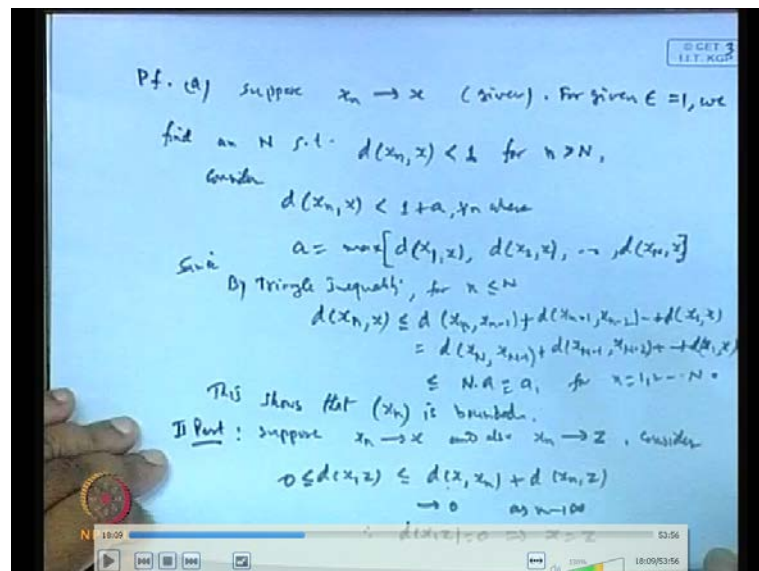 © CET
I.I.T. KGP
3
Pf. (a) Suppose xₙ → x (given). For given ε = 1, we
find an N s.t. d(xₙ, x) < 1 for n > N,
Consider
d(xₙ, x) < 1 + a, ∀n where
a = max[d(x₁, x), d(x₂, x), --, d(x_N, x]
Since
By Triangle Inequality, for n ≤ N
d(xₙ, x) ≤ d(xₙ, xₙ₋₁) + d(xₙ₋₁, xₙ₋₂) -- + d(x₁, x)
= d(x_N, x_N-1) + d(x_N-1, x_N-2) + -- + d(x₁, x)
≤ N.a = a, for n = 1, 2 -- N.
This shows that (xₙ) is bounded.
II Part : Suppose xₙ → x and also xₙ → z, Consider
0 ≤ d(x, z) ≤ d(x, xₙ) + d(xₙ, z)
→ 0 as n → ∞
∴ d(x, z) = 0 ⇒ x = z
18:09
53:56
100%
18:09/53:56